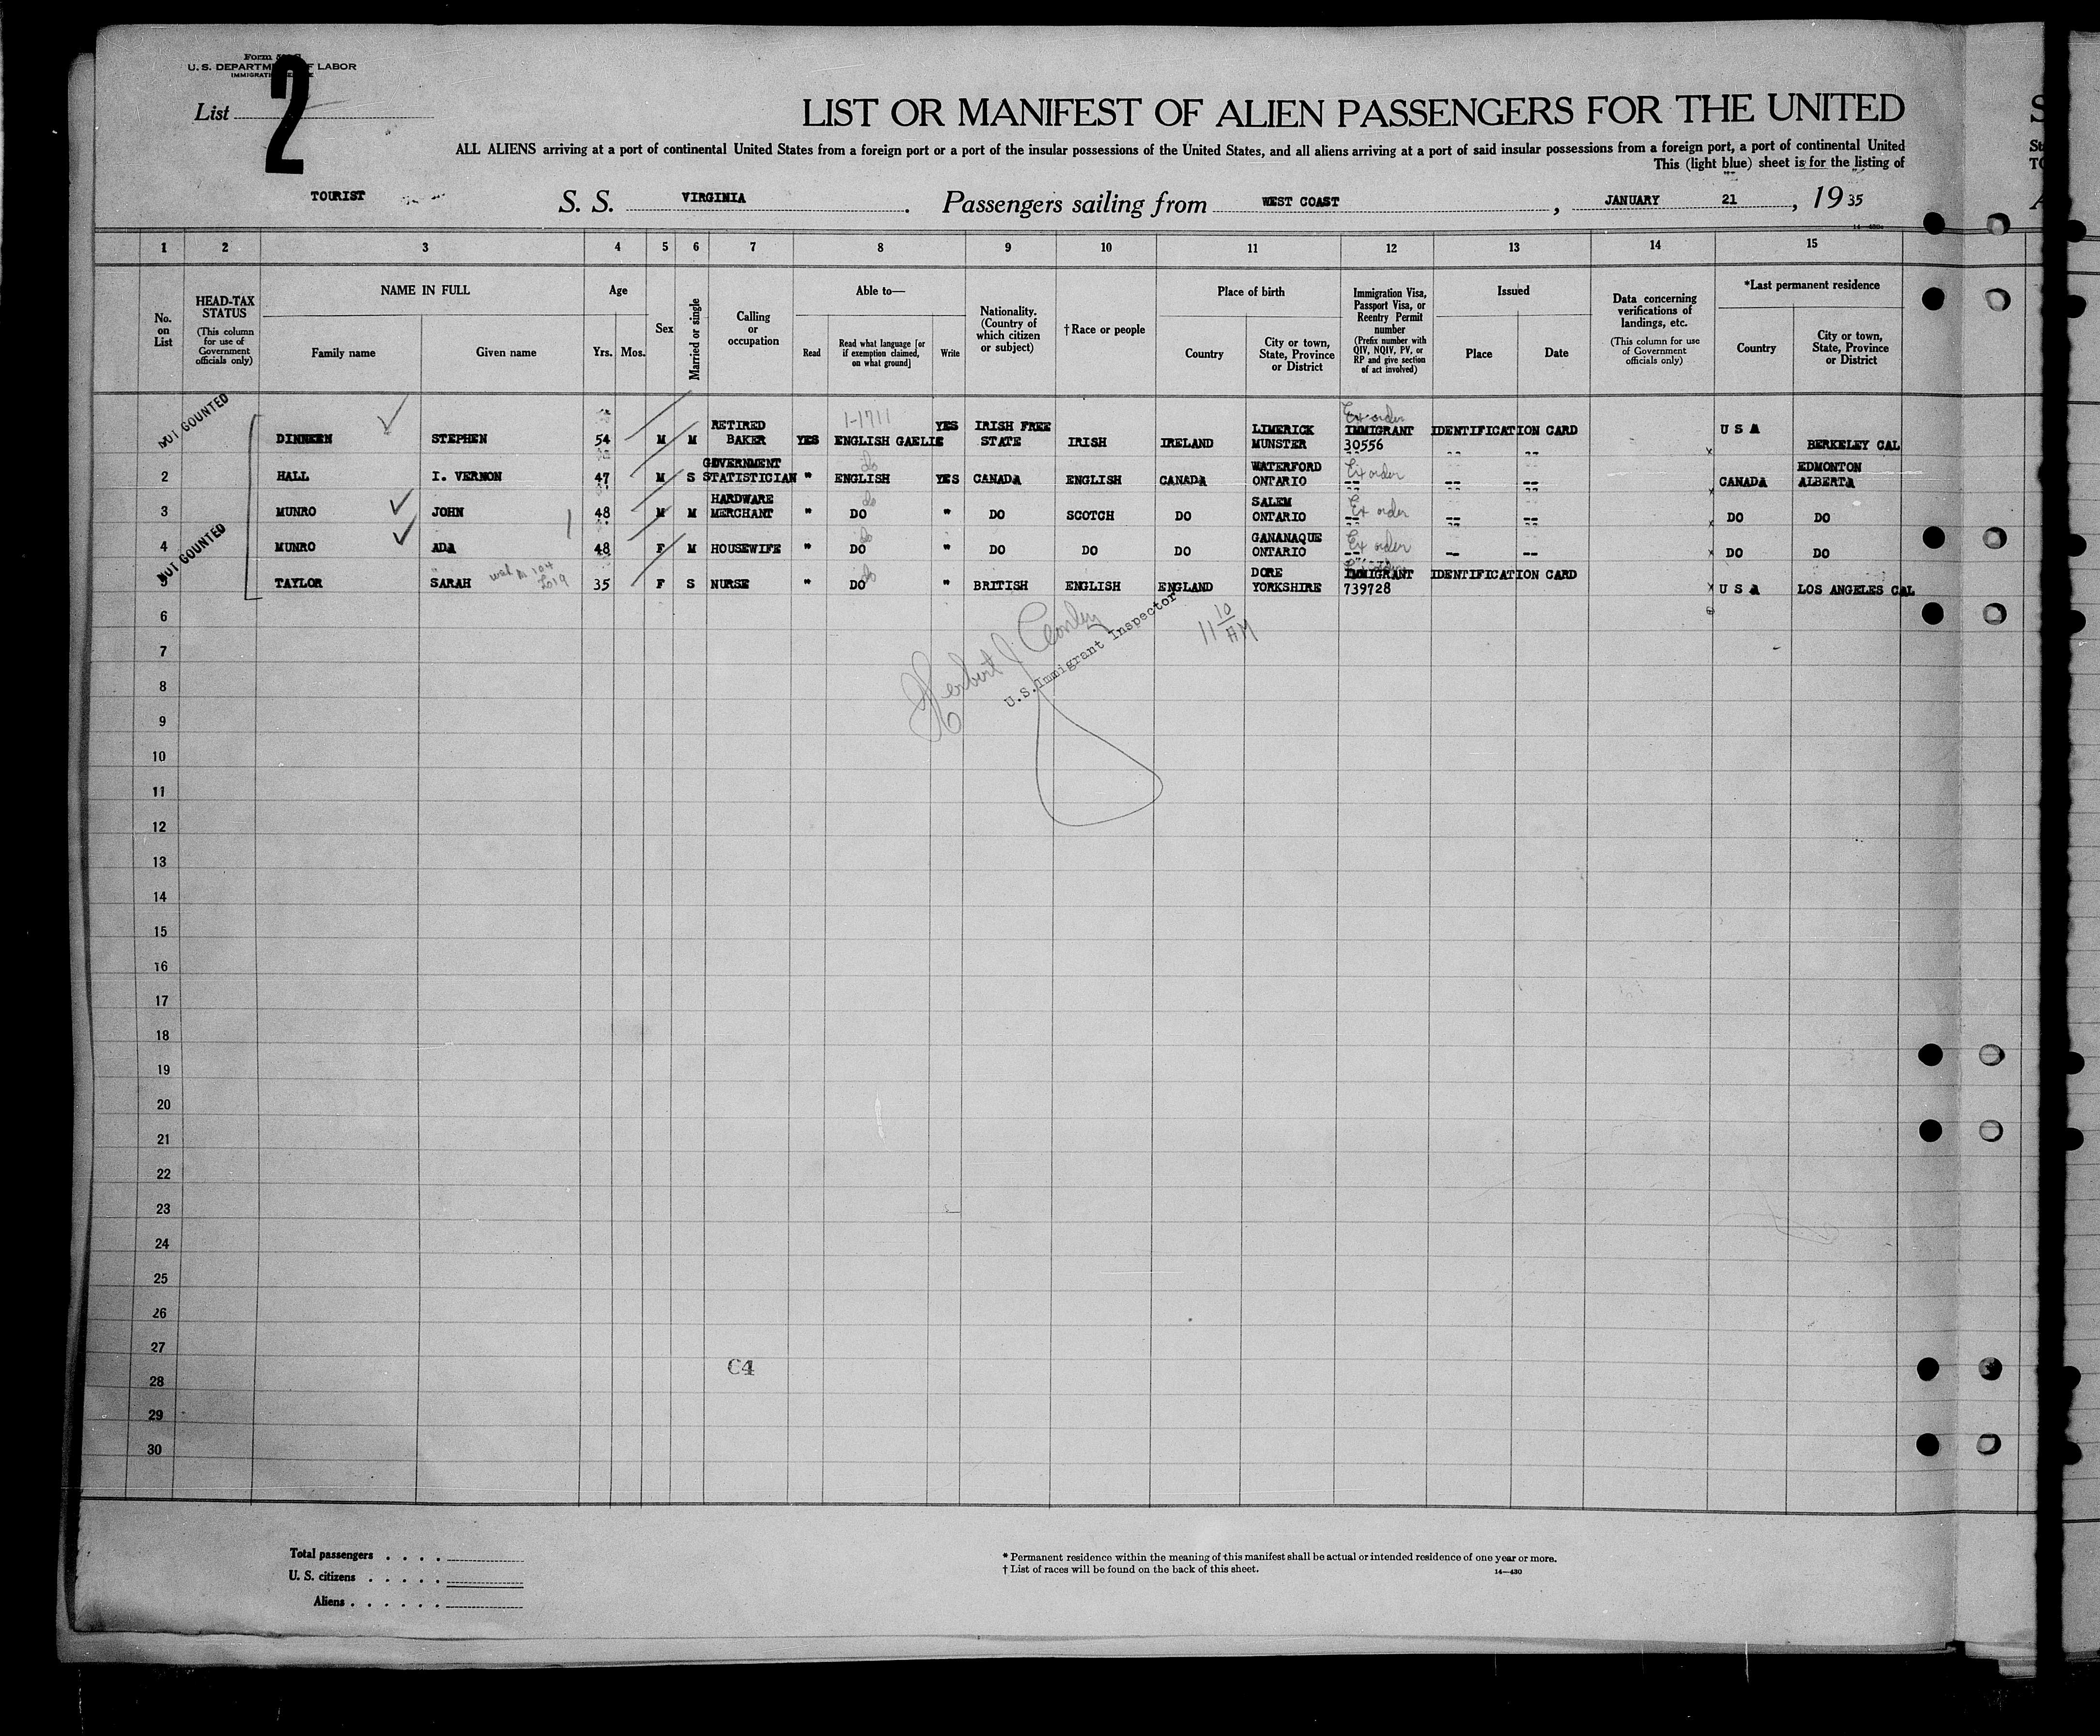 U. S. DEPARTMENT OF LABOR
List
2
LIST OR MANIFEST OF ALIEN PASSENGERS FOR THE UNITED
ALL ALIENS arriving at a port of continental United States from a foreign port or a port of the insular possessions of the United States, and all aliens arriving at a port of said insular possessions from a foreign port, a port of continental United
This (light blue) sheet is for the listing of
TOURIST S. S. VIRGINIA. Passengers sailing from WEST COAST, JANUARY 21, 19 35
1 2 3 4 5 6 7 8 9 10 11 12 13 14 15
No. on List
HEAD-TAX STATUS (This column for use of Government officials only)
NAME IN FULL
Family name
Given name
Age
Yrs. Mos.
Sex
Married or single
Calling or occupation
Able to—
Read
Read what language [or if exemption claimed, on what ground]
Write
Nationality. (Country of which citizen or subject)
†Race or people
Place of birth
Country
City or town, State, Province or District
Immigration Visa, Passport Visa, or Reentry Permit number (Prefix number with QIV, NQIV, PV, or RP and give section of act involved)
Issued
Place
Date
Data concerning verifications of landings, etc. (This column for use of Government officials only)
*Last permanent residence
Country
City or town, State, Province or District
NOT COUNTED
1-1711
Ex order
DINNEEN STEPHEN 54 M M RETIRED BAKER YES ENGLISH GAELIC YES IRISH FREE STATE IRISH IRELAND LIMERICK MUNSTER IMMIGRANT IDENTIFICATION CARD 30556 U S A BERKELEY CAL
2 HALL I. VERNON 47 M S GOVERNMENT STATISTICIAN " ENGLISH do YES CANADA ENGLISH CANADA WATERFORD ONTARIO Ex order -- -- -- CANADA EDMONTON ALBERTA
3 MUNRO JOHN 48 M M HARDWARE MERCHANT " DO do " DO SCOTCH DO SALEM ONTARIO Ex order -- -- -- DO DO
4 MUNRO ADA 48 F M HOUSEWIFE " DO do " DO DO DO GANANAQUE ONTARIO Ex order -- -- -- DO DO
NOT COUNTED
5 TAYLOR SARAH 35 F S NURSE " DO do " BRITISH ENGLISH ENGLAND DORE YORKSHIRE IMMIGRANT IDENTIFICATION CARD 739728 U S A LOS ANGELES CAL
6
U.S. Immigrant Inspector
11 10 AM
7
8
9
10
11
12
13
14
15
16
17
18
19
20
21
22
23
24
25
26
27
C4
28
29
30
Total passengers . . . .
U. S. citizens . . . . .
Aliens . . . . . .
* Permanent residence within the meaning of this manifest shall be actual or intended residence of one year or more.
† List of races will be found on the back of this sheet.
14—430